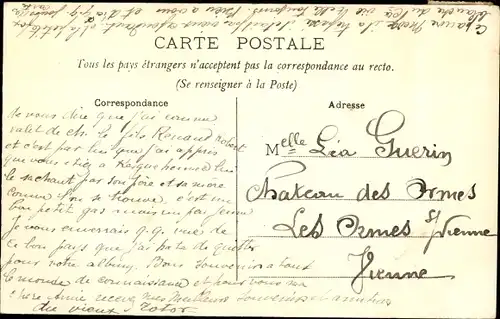 CARTE POSTALE
Tous les pays étrangers n'acceptent pas la correspondance au recto.
(Se renseigner à la Poste)
Correspondance
Adresse
je vous dire que j'ai connu
valet de ch. le fils Renaud robert
et c'est par lui que j'ai appris
que vous étiez a
le sachant par son père et sa mère
comme on se trouve. c'est un
bon petit gas mais un peu jeune
Je vous enverrais q.q. vues de
ce bon pays que j'ai hate de quitter
pour votre album. Bons Souvenirs a tout
le monde de connaissance et pour vous ma
chère Amie recevez mes Meilleurs Souvenirs
du vieux Totor
Melle Léa Guerin
Chateau des Ormes
Les Ormes S/ Vienne
Vienne